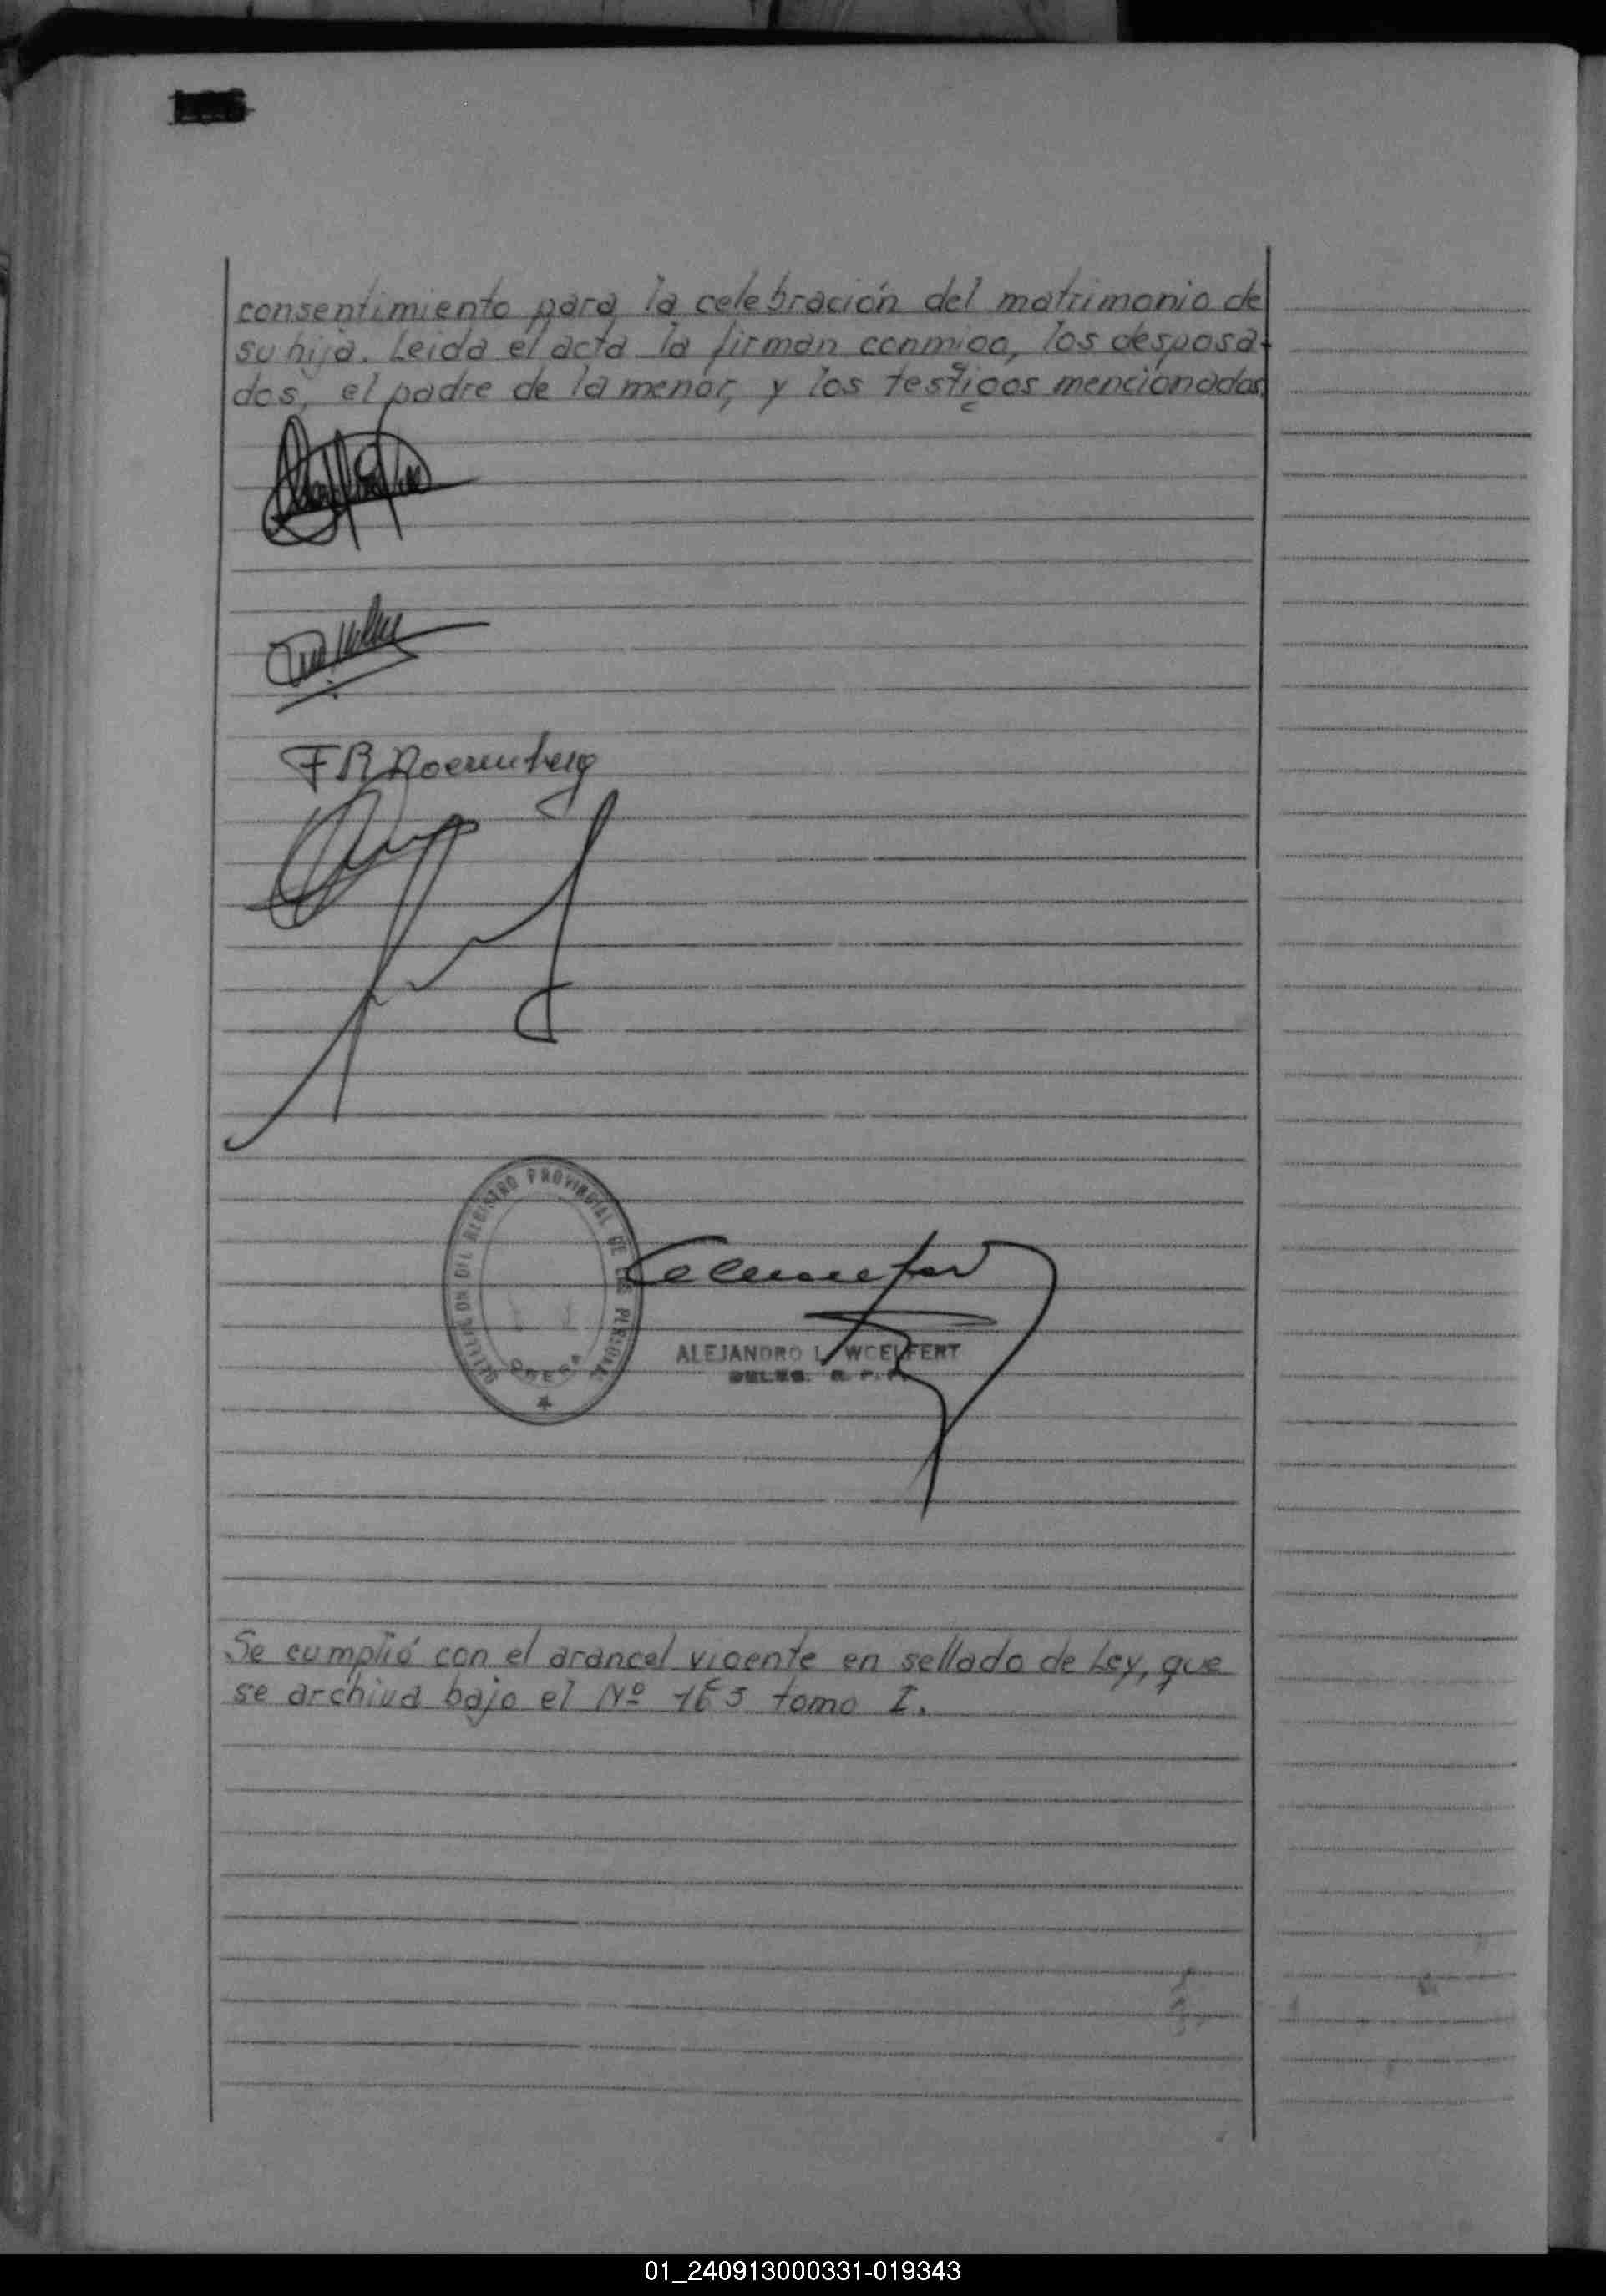 consentimiento para la celebración del matrimonio de
su hija. Leida el acta la firman conmigo, los desposa-
dos, el padre de la menor, y los testigos mencionados.
DEL REGISTRO PROVINCIAL DE LAS PERSONAS
OBERA
ALEJANDRO L. WOELFERT
DELEG. R. P. P.
Se cumplió con el arancel vigente en sellado de Ley, que
se archiva bajo el Nº 165 tomo I.
01_240913000331-019343